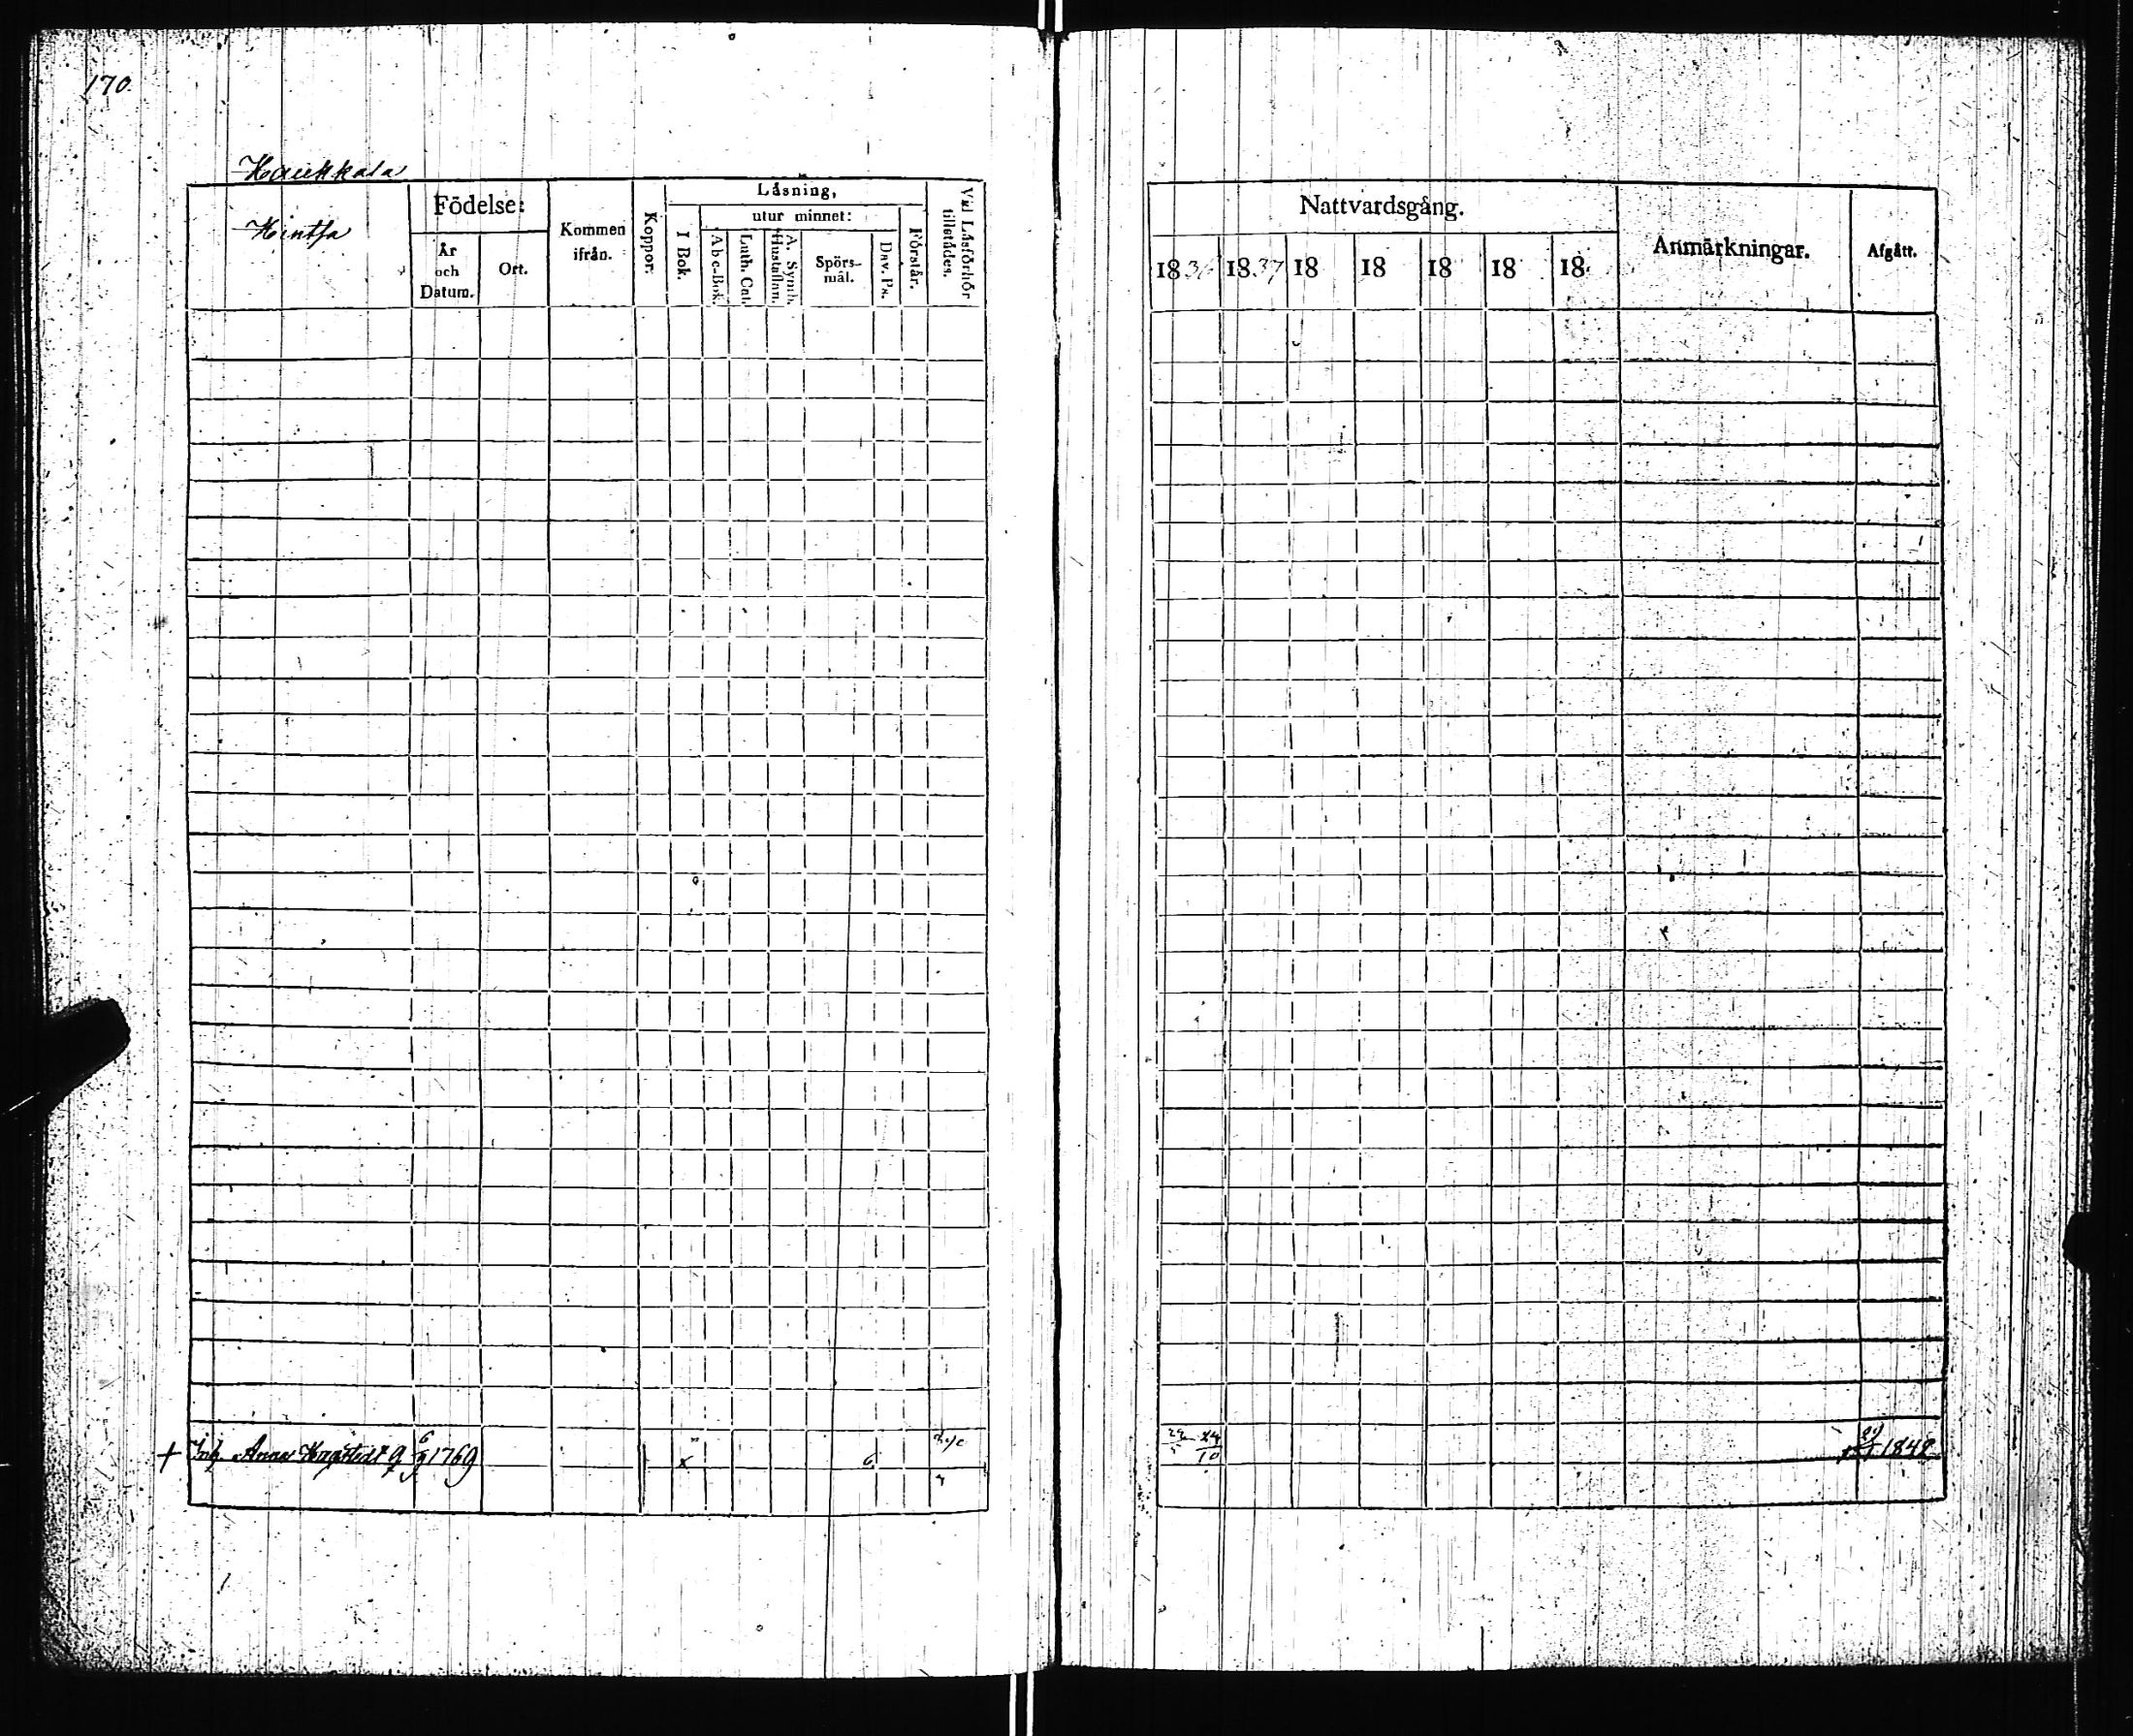 170.
Haukkala
Hintsa
Födelse:
År
och
Datum.
Ort.
Kommen
ifrån.
Koppor.
Läsning,
I Bok.
utur minnet:
Abc-Bok.
Luth. Cat.
A. Symb.
Hustaflan.
Spörs-
mål.
Dav. Ps.
Förstår.
Vid Läsförhör
tillstädes.
Nattvardsgång.
1836
1837
18
18
18
18
18
Anmärkningar.
Afgått.
+ Inh. Anna 6/9 1769
x
6
24/10
1842